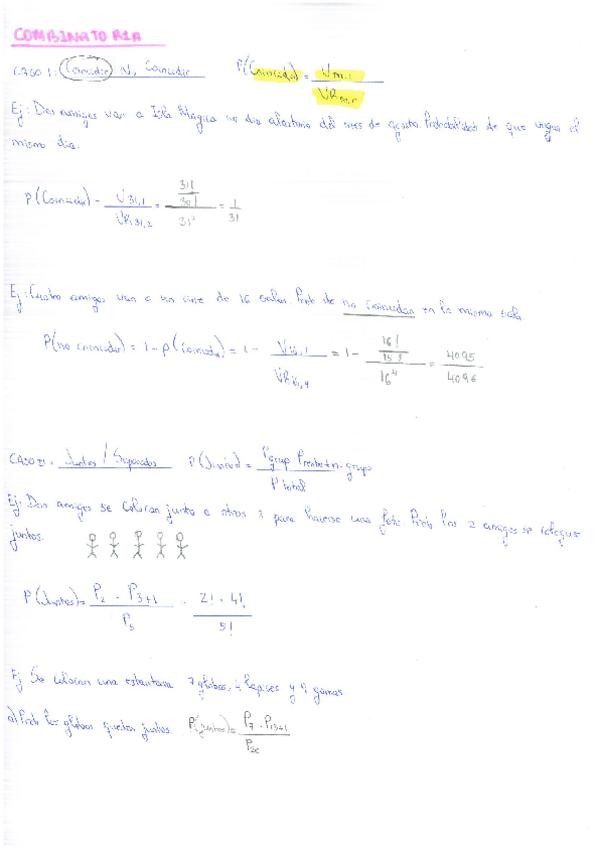 COMBINATORIA
CASO I: Coincidir / No Coincidir P(Coincidir) = Vm,1 / VRm,n
Ej: Dos amigos van a Isla Magica un dia aleatorio del mes de agosto. Probabilidad de que vayan el
mismo dia.
P(Coincidir) = V31,1 / VR31,2 = 31!/30! / 31² = 1/31
Ej: Cuatro amigos van a un cine de 16 salas. Prob de no coincidan en la misma sala
P(no coincidir) = 1 - P(coincidir) = 1 - V16,1 / VR16,4 = 1 - 16!/15! / 16⁴ = 4095/4096
CASO II: Juntos / Separados P(Juntos) = Pgrup · Presto+n·grup / Ptotal
Ej: Dos amigos se colocan junto a otros 3 para hacerse una foto. Prob los 2 amigos se coloquen
juntos.
P(Juntos) = P2 · P3+1 / P5 = 2! · 4! / 5!
Ej Se colocan una estanteria 7 globos, 4 lapices y 9 gomas
a) Prob los globos queden juntos. P(juntos) = P7 · P13+1 / P20